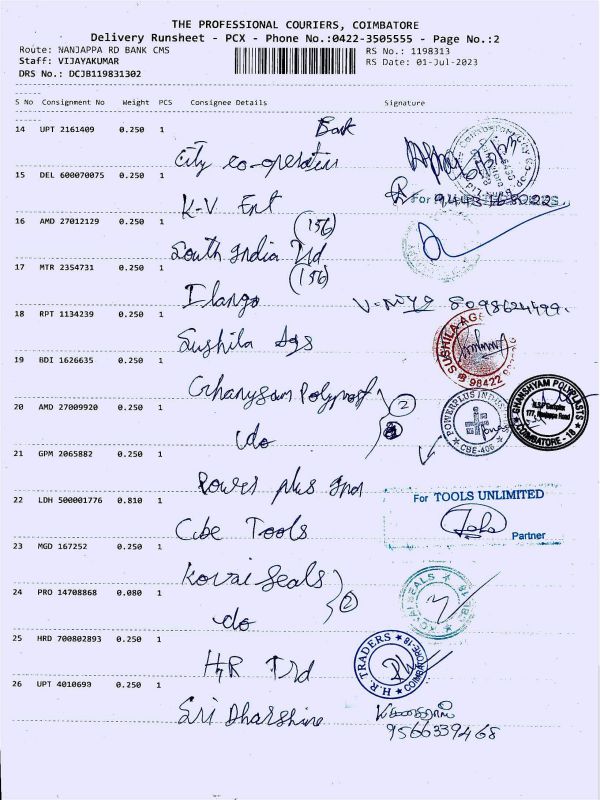 THE PROFESSIONAL COURIERS, COIMBATORE
Delivery Runsheet - PCX - Phone No.:0422-3505555 - Page No.:2
Route: NANJAPPA RD BANK CMS
RS No.: 1198313
Staff: VIJAYAKUMAR
RS Date: 01-Jul-2023
DRS No.: DCJB119831302
S No Consignment No Weight PCS Consignee Details Signature
14 UPT 2161409 0.250 1
Bank
City co-operative
15 DEL 600070075 0.250 1
K-V Ent
For
16 AMD 27012129 0.250 1
(156)
South India Trd
17 MTR 2354731 0.250 1
(156)
Ilango
8098624499.
18 RPT 1134239 0.250 1
Sushila Ags
SUSHILA AGE
98422
19 BDI 1626635 0.250 1
Ghanysam Polypast
2
20 AMD 27009920 0.250 1
do
POWERPLUS INDUS
CBE-
GHANSHYAM POLYPLASTS
177, Nanjappa Road
COIMBATORE - 18
21 GPM 2065882 0.250 1
Power plus Ind
22 LDH 500001776 0.810 1
Cbe Tools
For TOOLS UNLIMITED
Partner
23 MGD 167252 0.250 1
Kovai Seals
24 PRO 14708868 0.080 1
do
2
KOVAI SEALS
25 HRD 700802893 0.250 1
HR Trd
H.R. TRADERS
COIMBATORE-18
26 UPT 4010690 0.250 1
Sri Dharshine
9566339468